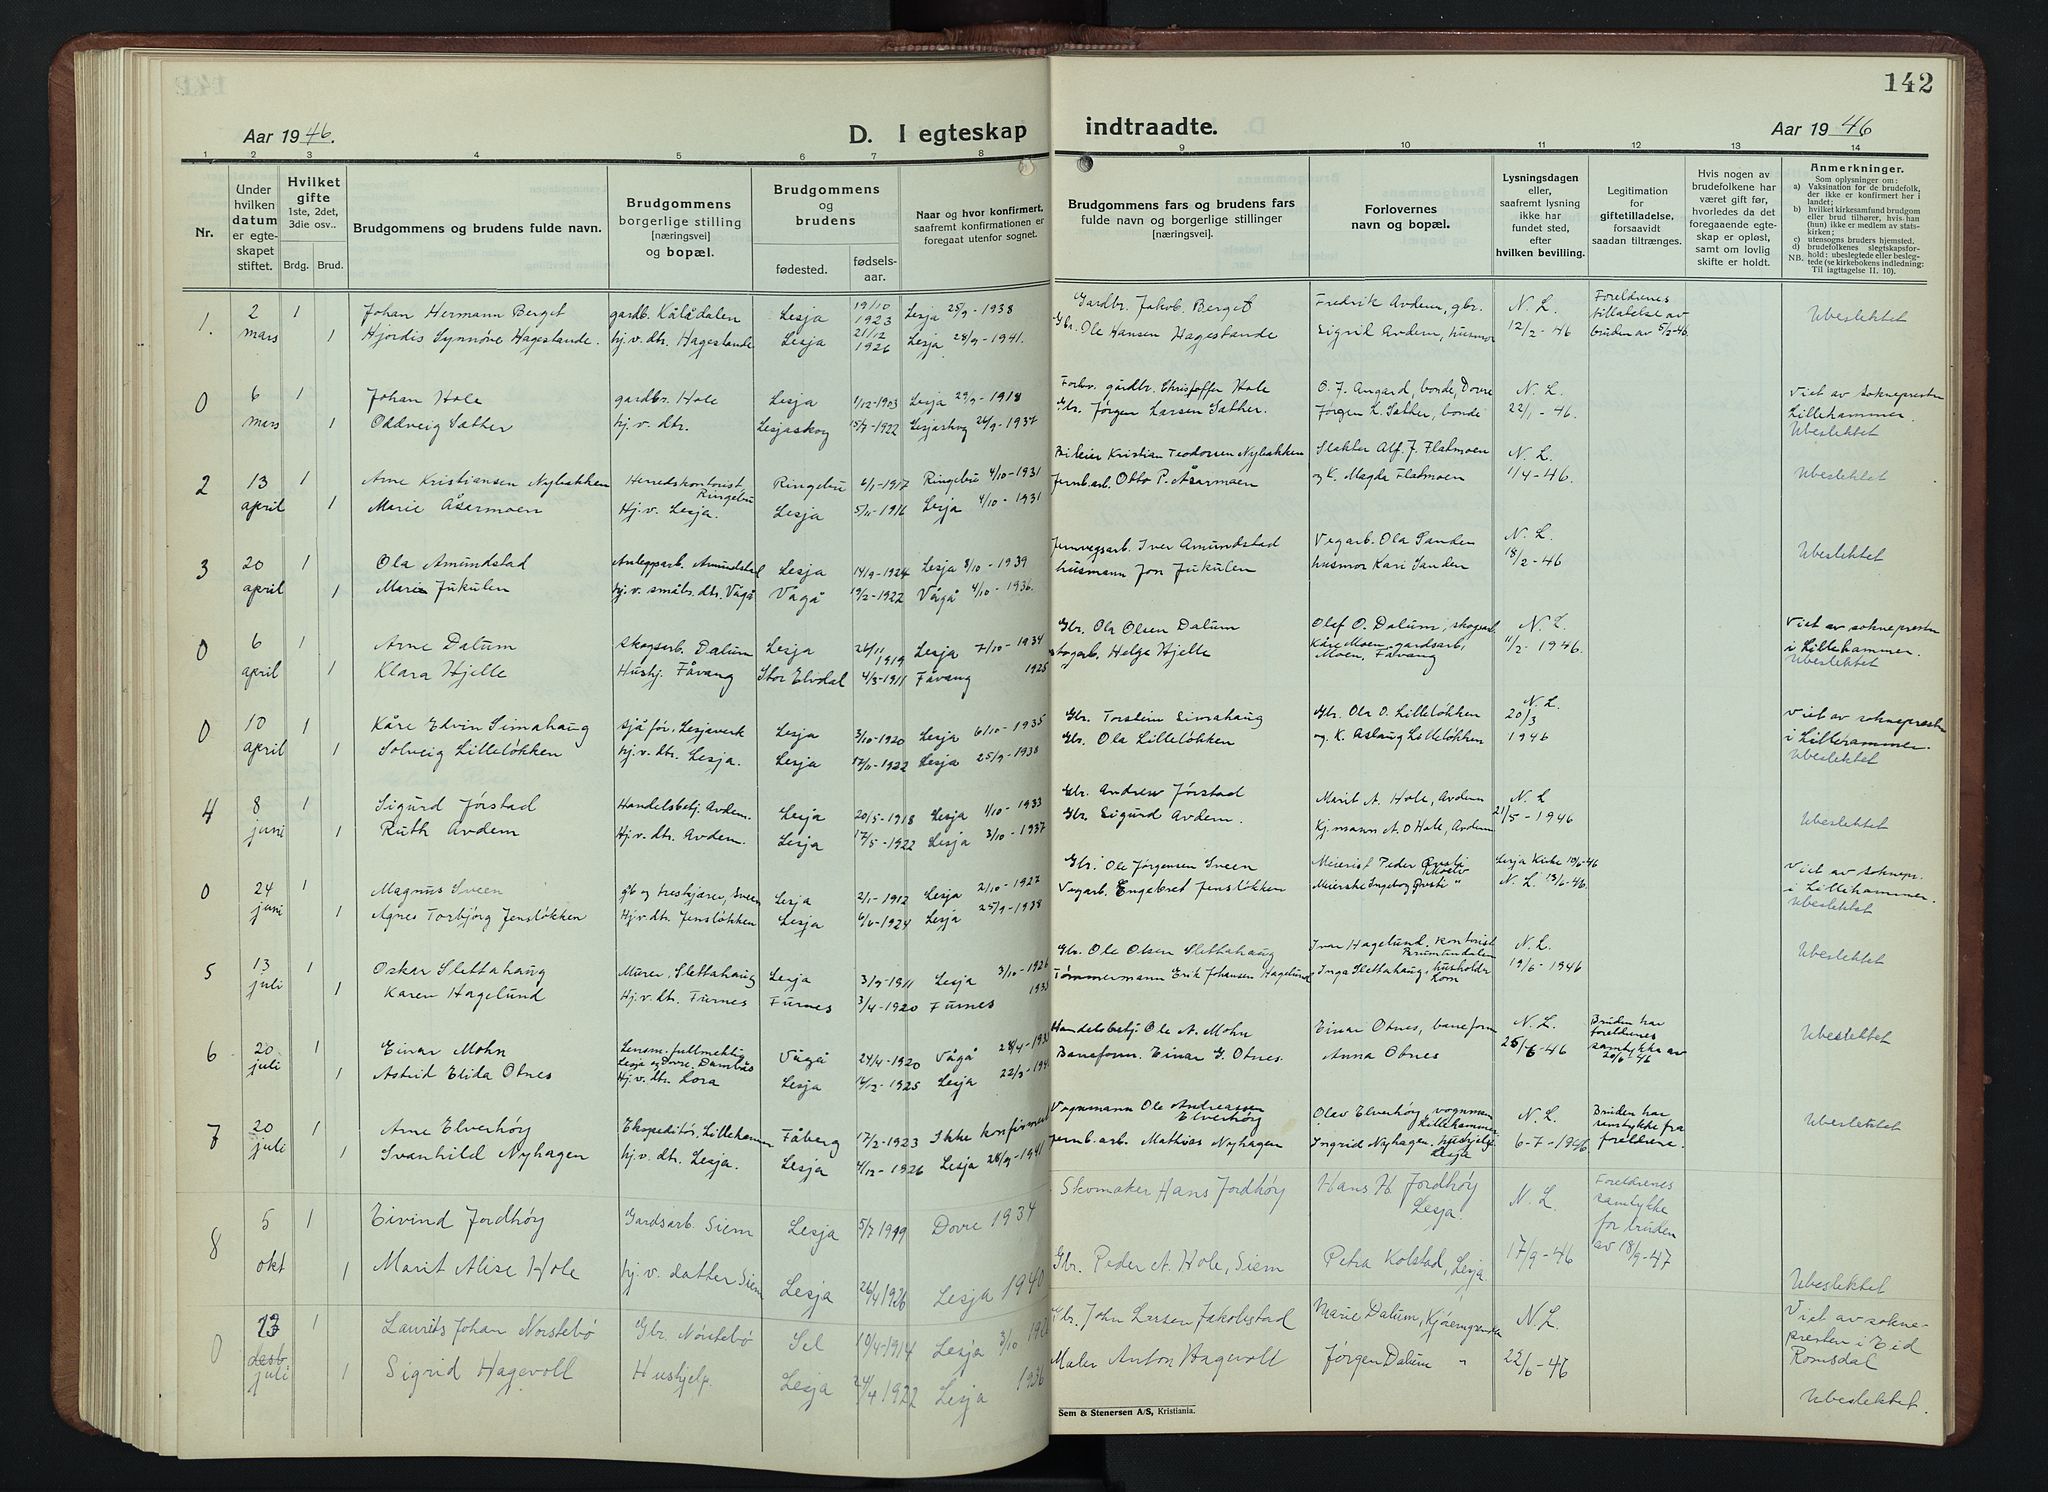 142
Aar 1946.
D. I egteskap indtraadte.
Aar 1946
1 2 3 4 5 6 7 8 9 10 11 12 13 14
Nr.
Under hvilken datum er egteskapet stiftet.
Hvilket gifte 1ste, 2det, 3die osv..
Brdg. Brud.
Brudgommens og brudens fulde navn.
Brudgommens borgerlige stilling [næringsvei] og bopæl.
Brudgommens og brudens
fødested.
fødselsaar.
Naar og hvor konfirmert, saafremt konfirmationen er foregaat utenfor sognet.
Brudgommens fars og brudens fars fulde navn og borgerlige stillinger [næringsvei].
Forlovernes navn og bopæl.
Lysningsdagen eller, saafremt lysning ikke har fundet sted, efter hvilken bevilling.
Legitimation for giftetilladelse, forsaavidt saadan tiltrænges.
Hvis nogen av brudefolkene har været gift før, hvorledes da det foregaaende egteskap er opløst, samt om lovlig skifte er holdt.
Anmerkninger.
Som oplysninger om:
a) Vaksination for de brudefolk, der ikke er konfirmert her i landet;
b) hvilket kirkesamfund brudgom eller brud tilhører, hvis han (hun) ikke er medlem av statskirken;
c) utensogns bruders hjemsted.
d) brudefolkenes slegtskapsforhold: ubeslegtede eller beslegtede (se kirkebokens indledning: Til iagttagelse II. 10).
NB.
1. 2 mars 1 Johan Hermann Berget gardb. Kålådalen Lesja 19/10 1923 Lesja 25/9-1938 Gardbr. Jakob Berget Fredrik Avdem, gbr. N. L. Foreldrenes tillatelse av Ubeslektet
1 Hjørdis Synnøve Hagestande. hj.v. dtr. Hagestande Lesja 21/12 1926 Lesja 28/9-1941. Gbr. Ole Hansen Hagestande Sigril Avdem, husmor 12/2-46 bruden av 5/2-46.
0 6 mars 1 Johan Hole gardbr. Hole Lesja 1/12-1903 Lesja 29/9-1918 Forhv. gårdbr. Christoffer Hole O. J. Angard, bonde, Dovre N. L. Viet av sognepresten
1 Oddveig Sæther hj.v. dtr. Lesjaskog 15/7-1922 Lesjaskog 26/9-1937 Gbr. Jørgen Larsen Sæther. Jørgen L. Sæther, bonde 22/1-46. Lillehammer. Ubeslektet
2 13 april 1 Arne Kristiansen Nybakken Herredskontorist, Ringebu Ringebu 6/1-1917 Ringebu 4/10-1931 Bileier Kristian Teodorsen Nybakken Slakter Alf. J. Flatmoen N. L. Ubeslektet
1 Marie Åsarmoen Hj.v. Lesja. Lesja 5/11-1916 Lesja 4/10-1931 Jernb.arb. Otto P. Åsarmoen og K. Magda Flatmoen 1/4-46.
3 20 april 1 Ola Amundstad Anleggsarb. Amundstad Lesja 14/9-1924 Lesja 8/10-1939 Jernvegsarb. Iver Amundstad Vegarb. Ola Sanden N. L. Ubeslektet
1 Marie Jukulen hj.v. småbr. dtr. Vågå Vågå 19/2-1922 Vågå 4/10-1936. husmann Jon Jukulen husmor Kari Sanden 18/2-46
0 6 april 1 Arne Dalum Skogsarb. Dalum Lesja 26/11 1919 Lesja 7/10-1934 Gbr. Ola Olsen Dalum Olaf O. Dalum, skogsarb. N. L. Viet av soknepresten
1 Klara Hjelle Hushj. Fåvang Stor Elvdal 4/3-1911 Fåvang 1925 Helge Hjelle Kåre Moen, gardsarb, Moen, Fåvang 11/2-1946. i Lillehammer. Ubeslektet
0 10 april 1 Kåre Edvin Simahaug sjåfør, Lesjaverk Lesja 3/10-1920 Lesja 6/10-1935 Gbr. Torstein Simahaug Gbr. Ola O. Lilleløkken N. L. 20/3 Viet av soknepresten
1 Solveig Lilleløkken hj.v. dtr. Lesja. Lesja 17/11-1922 Lesja 25/9-1938 Gbr. Ola Lilleløkken og K. Aslaug Lilleløkken 1946 i Lillehammer. Ubeslektet
4 8 juni 1 Sigurd Jørstad Handelsbetj. Avdem. Lesja 20/5-1918 Lesja 1/10-1933 Gbr. Andrew Jørstad Marit A. Hole, Avdem N. L Ubeslektet
1 Ruth Avdem Hj.v. dtr. Avdem. Lesja 17/5-1922 Lesja 3/10-1937 Gbr. Sigurd Avdem. Kj.mann A. O Hole, Avdem 21/5-1946
0 24 juni 1 Magnus Sveen gb og treskjærer, Sveen Lesja 2/1-1912 Lesja 2/10-1927 Gbr. Ole Jørgensen Sveen Meierist Peder Moelv Lesja Kirke 10/6-46 Viet av soknepr.
1 Agnes Torbjørg Jensløkken Hj.v. dtr. Jensløkken Lesja 6/10-1924 Lesja 25/9-1938 Vegarb. Engebret Jensløkken Meierske Ingeborg " N. L. 13/6-46. i Lillehammer. Ubeslektet
5 13 juli 1 Oskar Slettahaug Murer, Slettahaug Lesja 3/9-1911 Lesja 3/10-1926 Gbr. Ole Olsen Slettahaug Ivar Hagelund, kontorist Brumundalen N. L. Ubeslektet
1 Karen Hagelund Hj.v. dtr. Furnes Furnes 3/4-1920 Furnes 1935 Tømmermann Erik Johansen Hagelund Inga Slettahaug, husholdr 19/6-1946
6 20 juli 1 Einar Mohn Lensm. fullmektig Lesja og Dovre, Dombås Vågå 24/4-1920 Vågå Handelsbetj. Ole A. Mohn Einar Otnes, baneform N. L. Bruden har foreldrenes samtykke av 20/6 46 Ubeslektet
1 Astrid Elida Otnes Hj.v. dtr. Lora Lesja 14/12-1925 Lesja Baneform. Einar G. Otnes. Anna Otnes 25/6-46
7 20 juli 1 Arne Elverhøy Ekspeditør, Lillehammer Fåberg 17/2-1923 Ikke konfirmert Vognmann Ole Andreassen Elverhøy Olav Elverhøy, vognmann Lillehammer N. L. Bruden har samtykke fra foreldrene. Ubeslektet
1 Svanhild Nyhagen hj.v. dtr. Lesja. Lesja 4/12-1926 Lesja 28/9-1941 Jernb.arb. Mathias Nyhagen Ingrid Nyhagen, hushjelp Lesja 6-7-1946
8 5 okt 1 Eivind Jordhøy Gardsarb. Siem Lesja 5/7 1919 Dovre 1934 Skomaker Hans Jordhøy Hans H. Jordhøy Lesja. N. L. Foreldrenes samtykke for bruden av 18/9-47
1 Marit Alise Hole hj.v. datter Siem Lesja 26/4 1926 Lesja 1940 Gbr. Peder A. Hole, Siem Petra Kolstad, Lesja. 17/9-46 Ubeslektet
0 13 desb juli 1 Laurits Johan Norstebø Gbr. Nørstebø Sel 19/4-1914 Lesja 3/10 Gbr. John Larsen Jakobstad Marie Dalum, N. L. Viet av soknepresten i Eid Romsdal
1 Sigrid Hagevoll Hushjelp. Lesja 24/4 1922 Lesja 1936 Maler Anton Hagevoll Jørgen Dalum " 22/6-46 Ubeslektet.
Sem & Stenersen A/S, Kristiania.